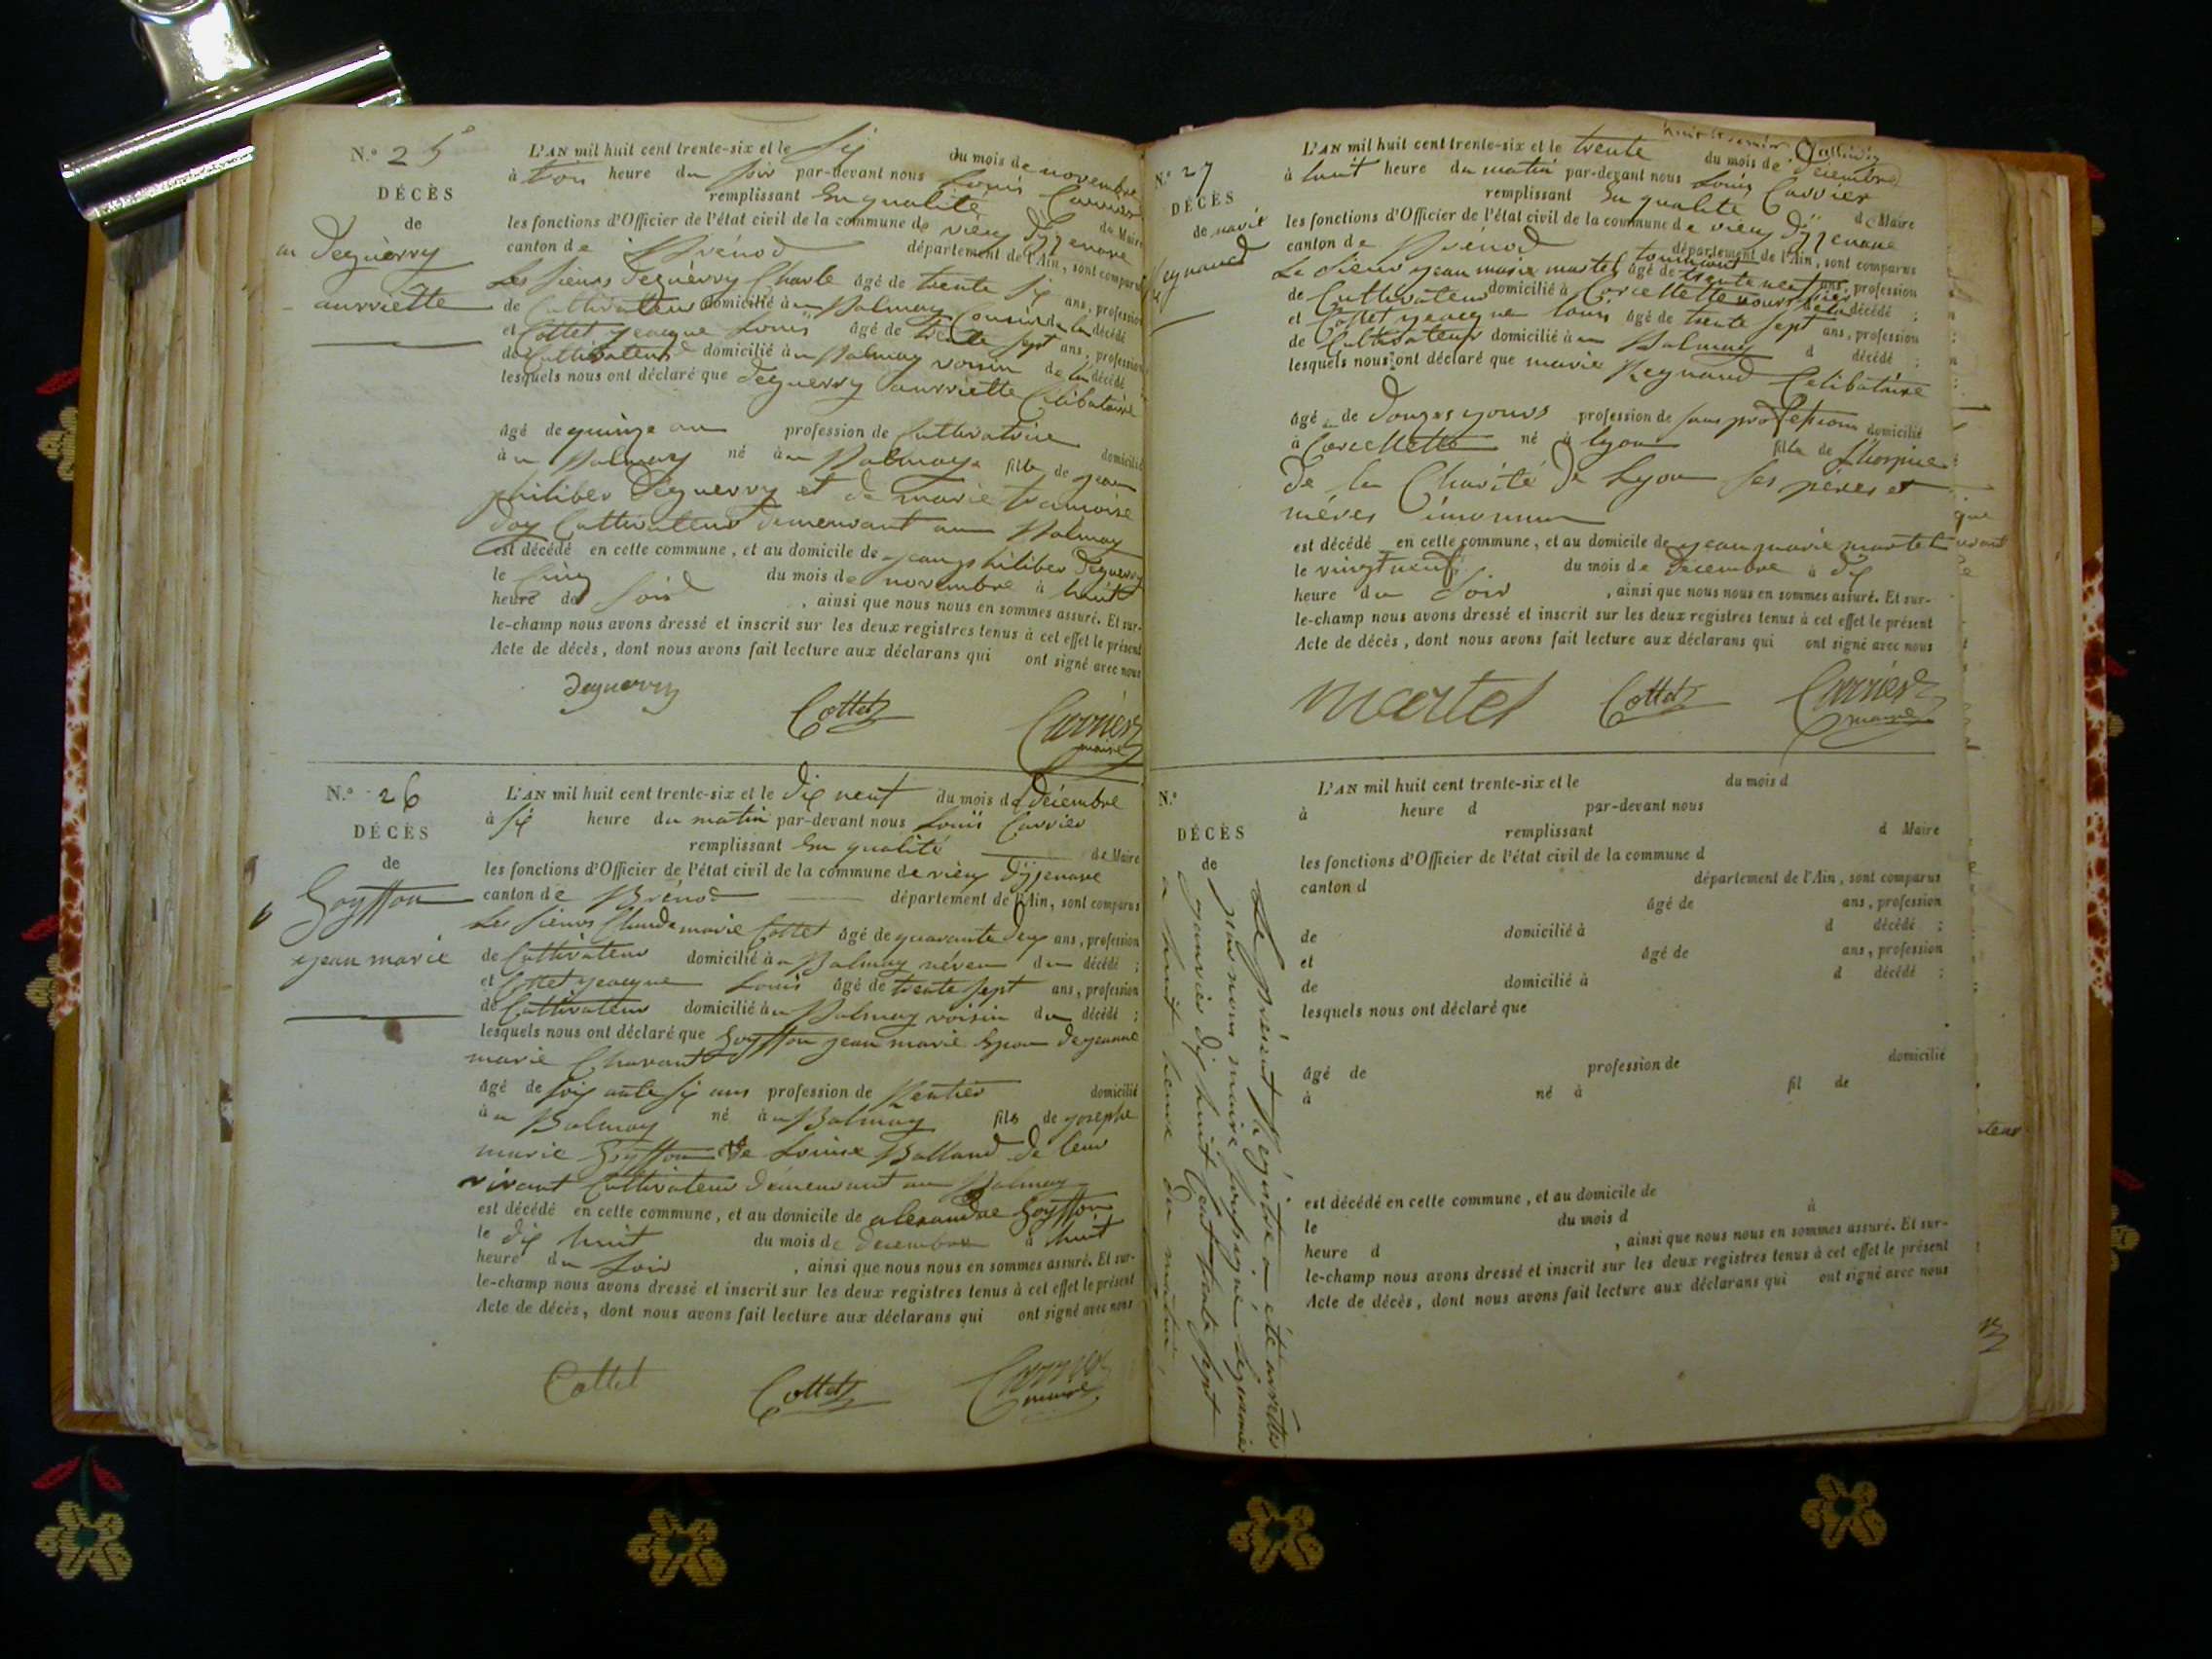 N.° 25
DÉCÈS
de
Deguerry
aurriette
L'AN mil huit cent trente-six et le Six du mois de novembre
à trois heure du soir par-devant nous Louis Carrier
remplissant En qualité de Maire
les fonctions d'Officier de l'état civil de la commune de vieux Dizenave
canton de Brénod département de l'Ain, sont comparus
Les Sieurs Deguerry Charle âgé de trente six ans, profession
de Cultivateur domicilié au Balmay Cousin de la décédé
et Cottet Jeacque Louis âgé de trente sept ans, profession
de Cultivateur domicilié au Balmay voisin de la décédé
lesquels nous ont déclaré que Deguerry aurriette Celibataire
âgé de quinze ans profession de Cultivatrice domicilié
à u Balmay né à u Balmay fille de jean
philiber Deguerry et de marie francoise
Doy Cultivateur demeurant au Balmay
est décédé en cette commune, et au domicile de jean philiber Deguerry
le Cinq du mois de novembre à huit
heure du Soir , ainsi que nous nous en sommes assuré. Et sur-
le-champ nous avons dressé et inscrit sur les deux registres tenus à cet effet le présent
Acte de décès, dont nous avons fait lecture aux déclarans qui ont signé avec nous
Deguerry Cottet Carrier
maire
N.° 26
DÉCÈS
de
Goyffon
jean marie
L'AN mil huit cent trente-six et le dix neuf du mois de Décembre
à Six heure du matin par-devant nous Louis Carrier
remplissant En qualité de Maire
les fonctions d'Officier de l'état civil de la commune de vieux Dizenave
canton de Brénod département de l'Ain, sont comparus
Les Sieurs Claude marie Cottet âgé de quarante deux ans, profession
de Cultivateur domicilié à u Balmay néveu du décédé ;
et Cottet jeacque Louis âgé de trente sept ans, profession
de Cultivateur domicilié à u Balmay voisin du décédé ;
lesquels nous ont déclaré que Goyffon jean marie Epoux de jeanne
marie Chavant
âgé de soixante six ans profession de Rentier domicilié
à u Balmay né à u Balmay fils de josephe
marie Goyffon & de Louise Balland de leur
vivant Cultivateur demeurant au Balmay
est décédé en cette commune, et au domicile de alexandre Goyffon
le dix huit du mois de decembre à huit
heure du Soir , ainsi que nous nous en sommes assuré. Et sur-
le-champ nous avons dressé et inscrit sur les deux registres tenus à cet effet le présent
Acte de décès, dont nous avons fait lecture aux déclarans qui ont signé avec nous
Cottet Cottet Carrier
maire
N.° 27
DÉCÈS
de marie
Regnaud
L'AN mil huit cent trente-six et le trente du mois de Décembre
à huit heure du matin par-devant nous Louis Carrier
remplissant En qualité de Maire
les fonctions d'Officier de l'état civil de la commune de vieux Dizenave
canton de Brénod département de l'Ain, sont comparus
Le Sieur jean marie martel âgé de trente neuf ans, profession
de Cultivateur domicilié à Corcellette nourissier de la décédé ;
et Cottet jeacque louis âgé de trente sept ans, profession
de Cultivateur domicilié à u Balmay d décédé ;
lesquels nous ont déclaré que marie Regnaud Celibataire
âgé de Douzes jours profession de sans profession domicilié
à Corcellette né à lyon fille de L'hospice
de la Charité de Lyon ses pères et
mères inconnu
est décédé en cette commune, et au domicile de jean marie martel
le vingt neuf du mois de Décembre à dix
heure du Soir , ainsi que nous nous en sommes assuré. Et sur-
le-champ nous avons dressé et inscrit sur les deux registres tenus à cet effet le présent
Acte de décès, dont nous avons fait lecture aux déclarans qui ont signé avec nous
martel Cottet Carrier
maire
N.°
DÉCÈS
de
Le présent Régistre a été arrêtté
par nous maire soussigné le premier
janvier dix huit cent trente sept
a huit heure du matin
L'AN mil huit cent trente-six et le du mois d
à heure d par-devant nous
remplissant d Maire
les fonctions d'Officier de l'état civil de la commune d
canton d département de l'Ain, sont comparus
âgé de ans, profession
de domicilié à d décédé ;
et âgé de ans, profession
de domicilié à d décédé ;
lesquels nous ont déclaré que
âgé de profession de domicilié
à né à fil de
est décédé en cette commune, et au domicile de
le du mois d à
heure d , ainsi que nous nous en sommes assuré. Et sur-
le-champ nous avons dressé et inscrit sur les deux registres tenus à cet effet le présent
Acte de décès, dont nous avons fait lecture aux déclarans qui ont signé avec nous